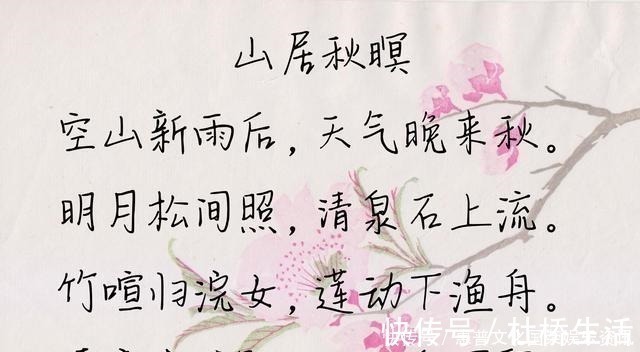 山居秋暝
空山新雨后，天气晚来秋。
明月松间照，清泉石上流。
竹喧归浣女，莲动下渔舟。
快传号／杜桥生活